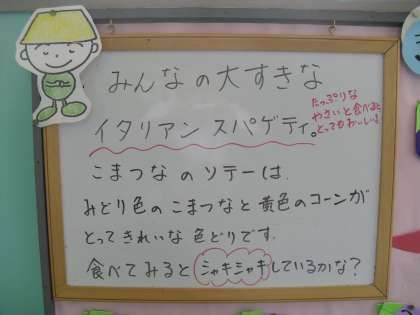 みんなの大すきな
イタリアン スパゲティ。
たっぷりな
やさいと食べると
とってもおいしい!
こまつなのソテーは、
みどり色のこまつなと黄色のコーンが
とってきれいな色どりです。
食べてみるとシャキシャキしているかな?